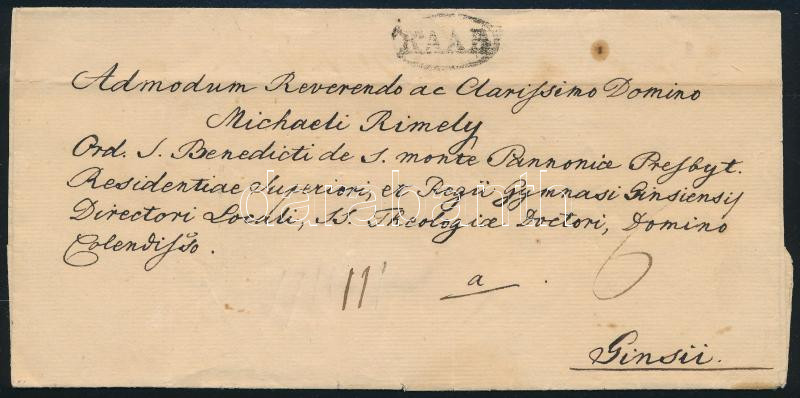 RAAB
Admodum Reverendo ac Clarissimo Domino
Michaeli Rimely
Ord. S. Benedicti de S. monte Pannoniæ Presbyt.
Residentiae Superiori, et Regii Gymnasi Ginsiensis
Directori Locali, SS. Theologiæ Doctori, Domino
Colendisso.
11
a
6
Ginsii.
darabanth